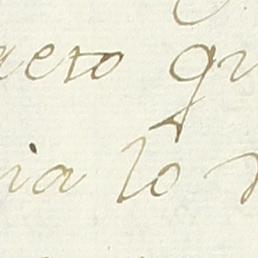 aeto qu
ia lo